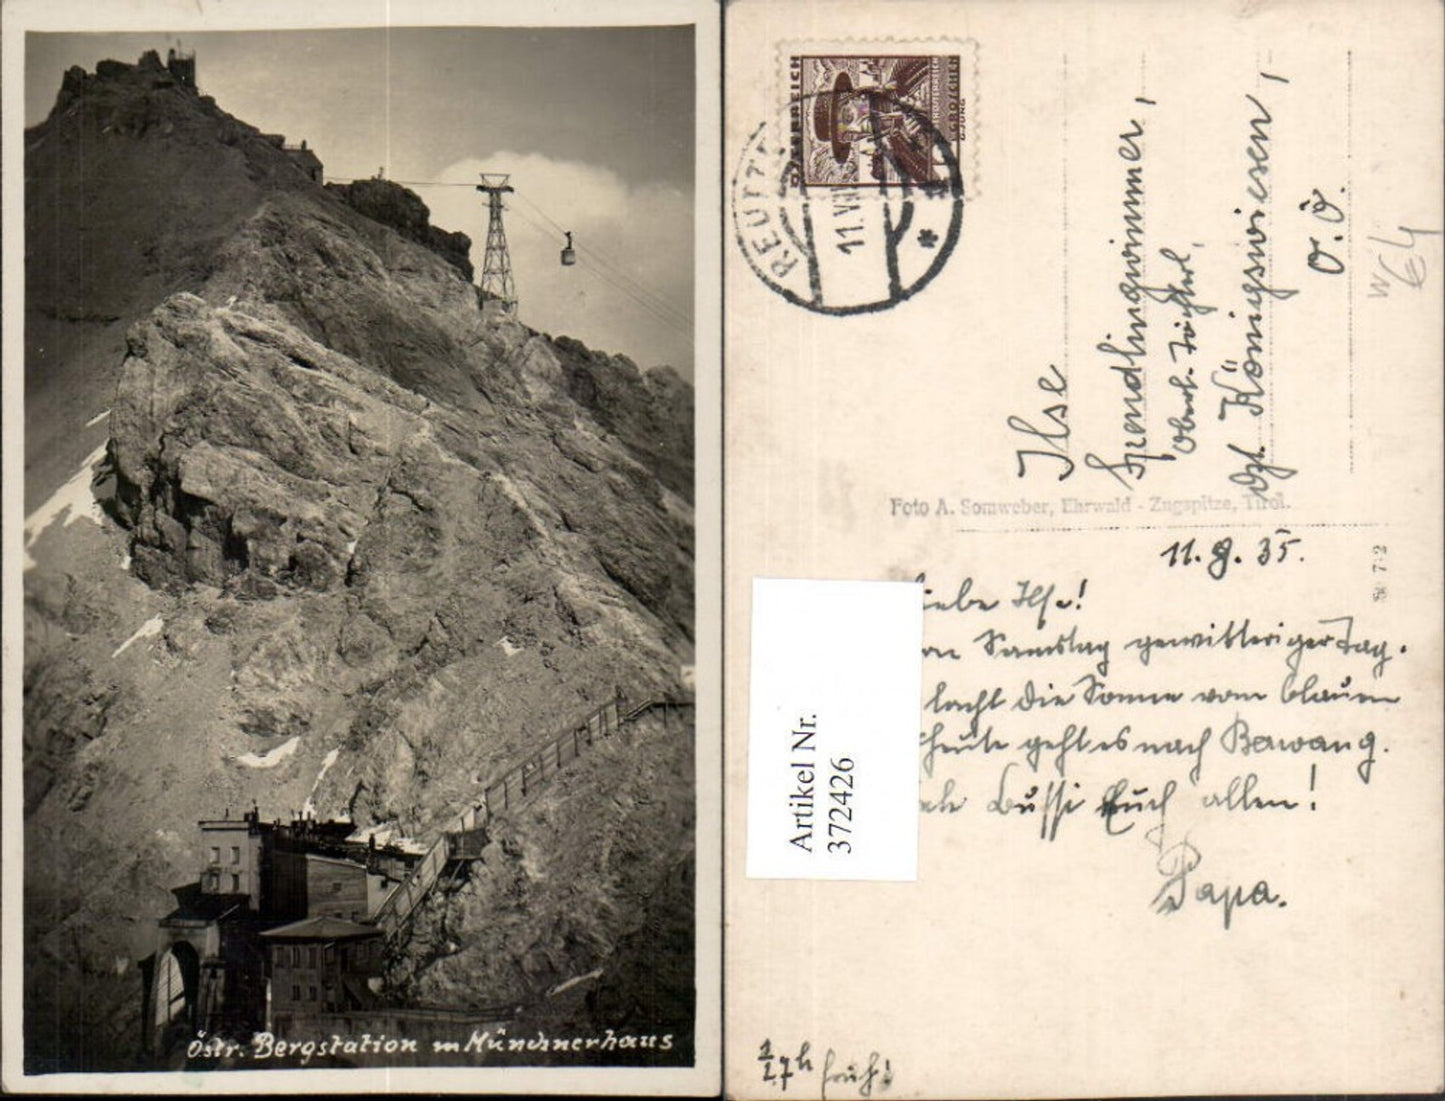 Östr. Bergstation m Münchnerhaus
ÖSTERREICH
GROSCHEN
REUTTE
11.VIII
*
Ilse
Spendlingwimmer,
Königswiesen,
O.Ö.
W
64
Foto A. Somweber, Ehrwald - Zugspitze, Tirol.
11. 8. 35.
iebe Ilse!
Samstag gewittriger Tag.
lacht die Sonne vom blauen
heute geht es nach Berwang.
Bussi Euch allen!
Papa.
1/2 7 h früh!
Artikel Nr.
372426